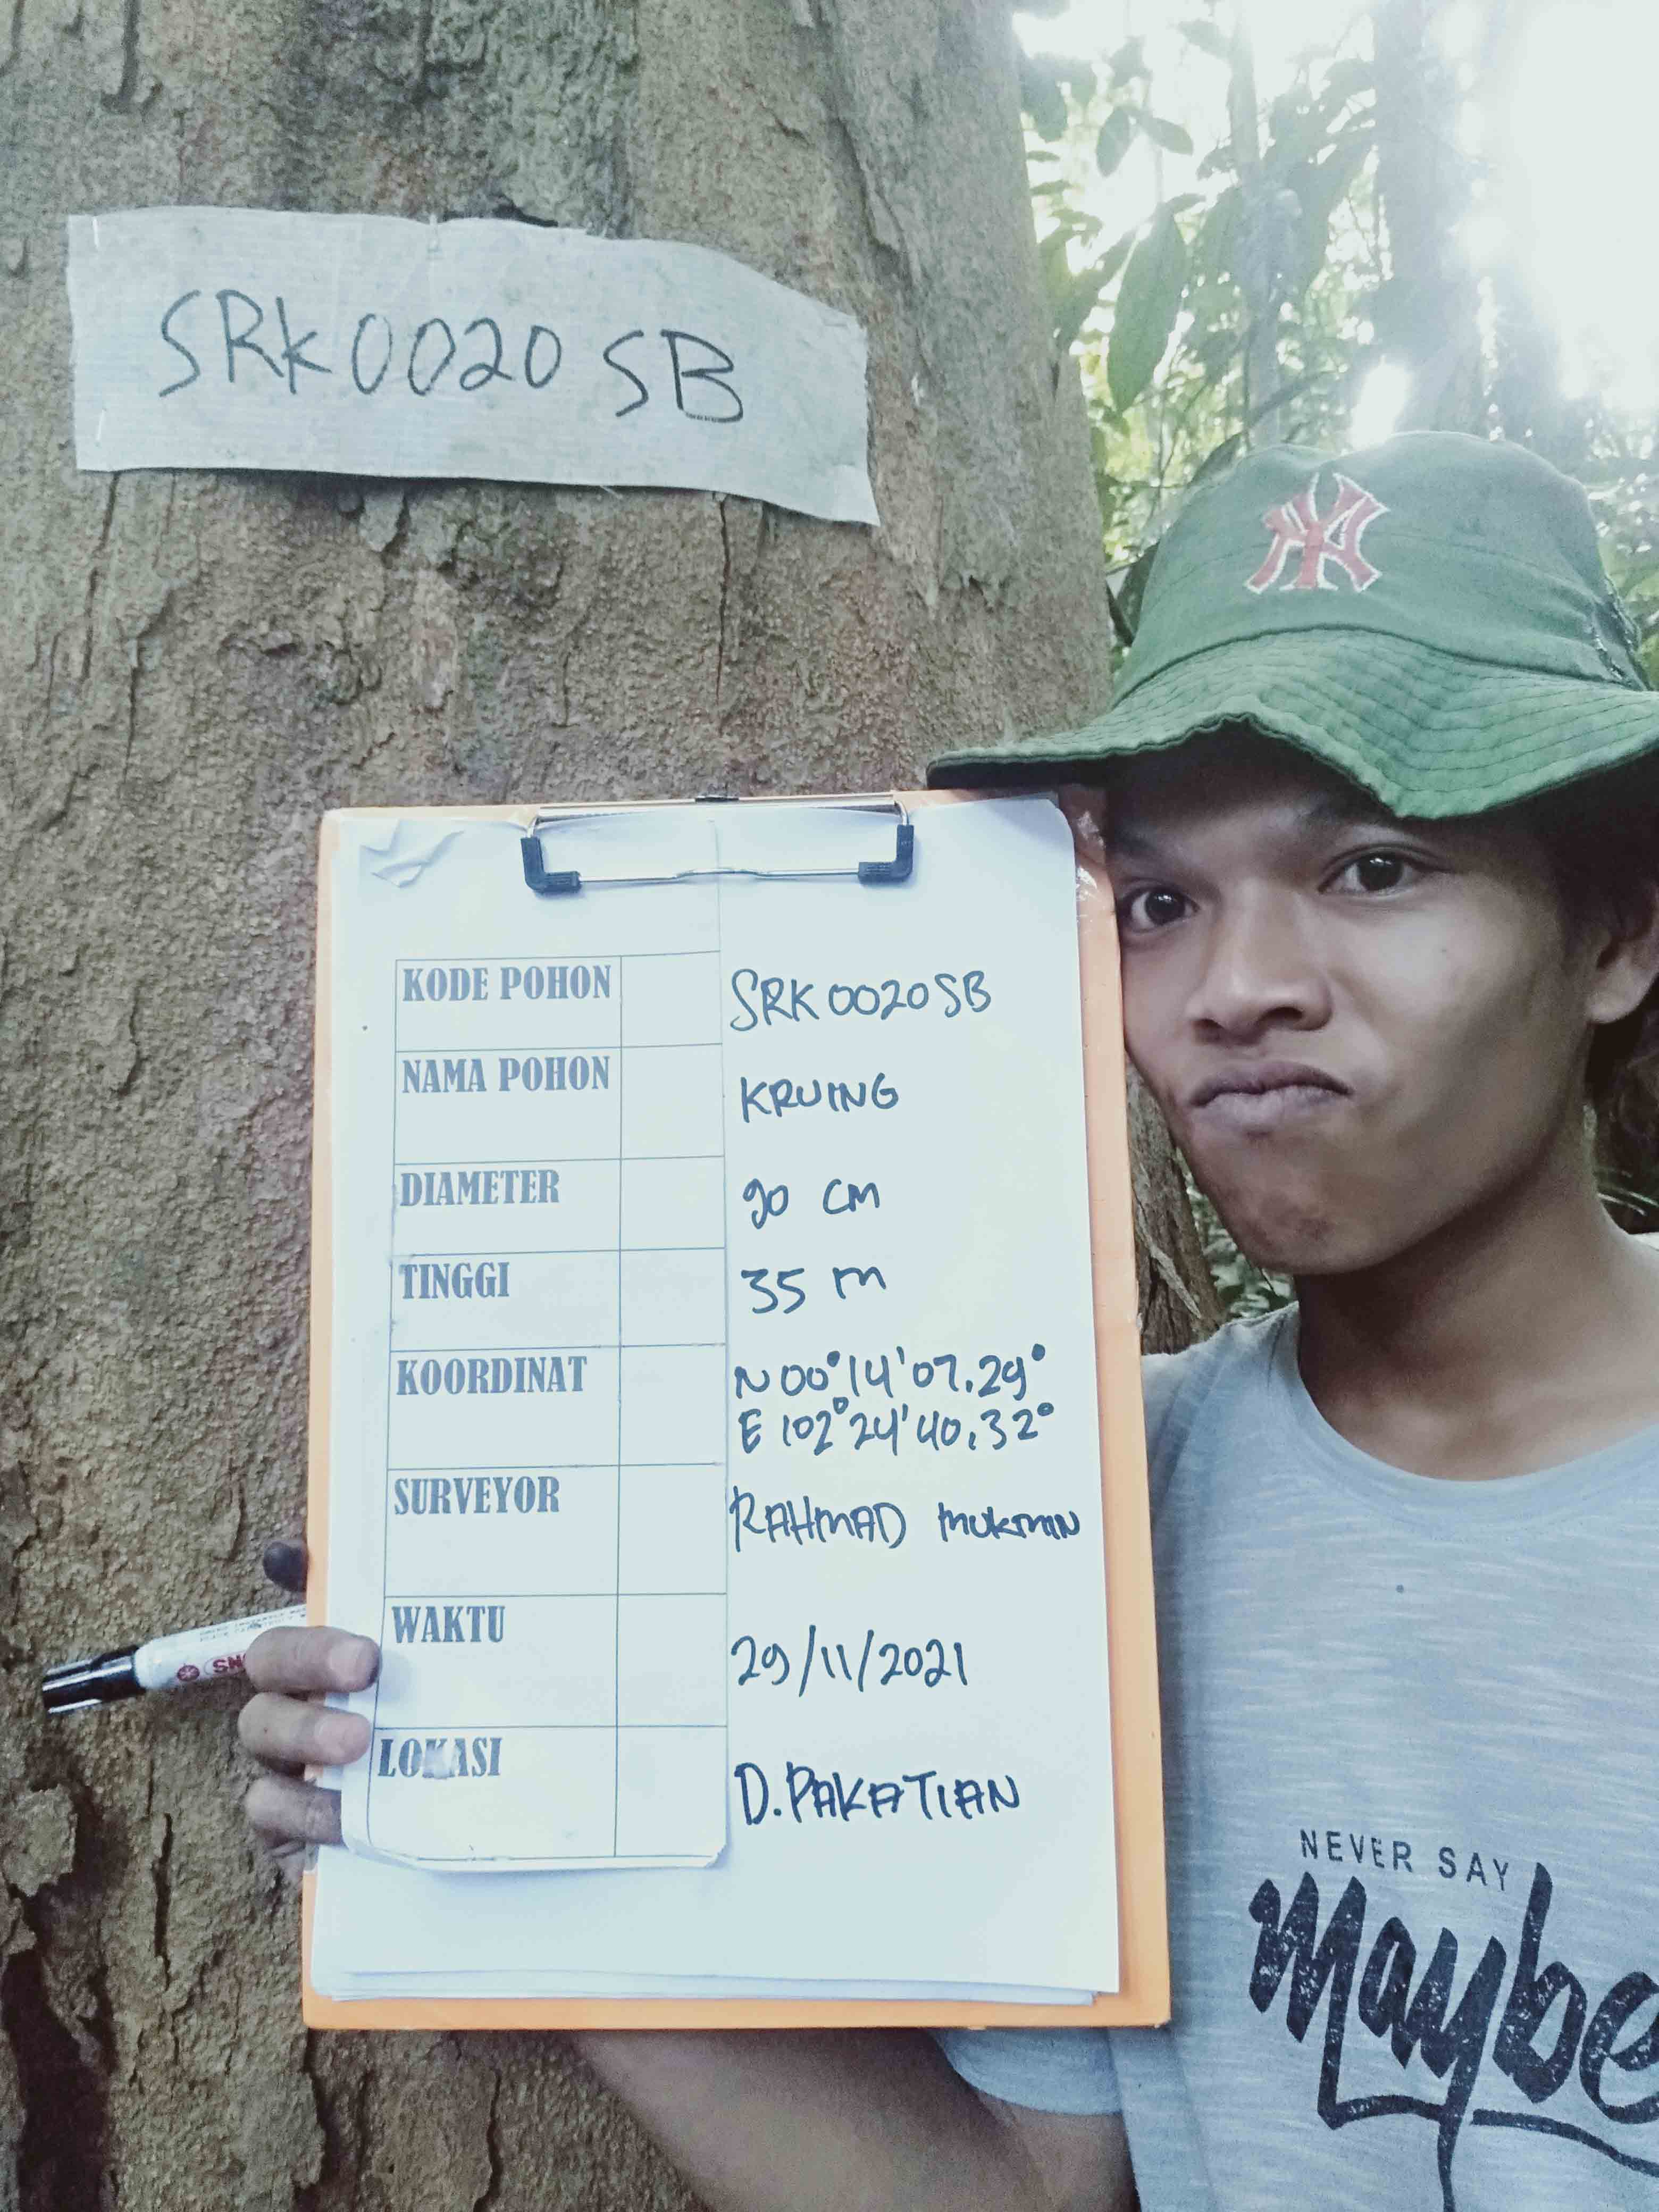 SRK0020 SB
NY
KODE POHON SRK0020SB
NAMA POHON KRUING
DIAMETER 90 CM
TINGGI 35 m
KOORDINAT N 00°14'07.29°
E 102°24'40.32°
SURVEYOR RAHMAD MUKMIN
WAKTU 29/11/2021
LOKASI D.PAKATIAN
NEVER SAY
Maybe